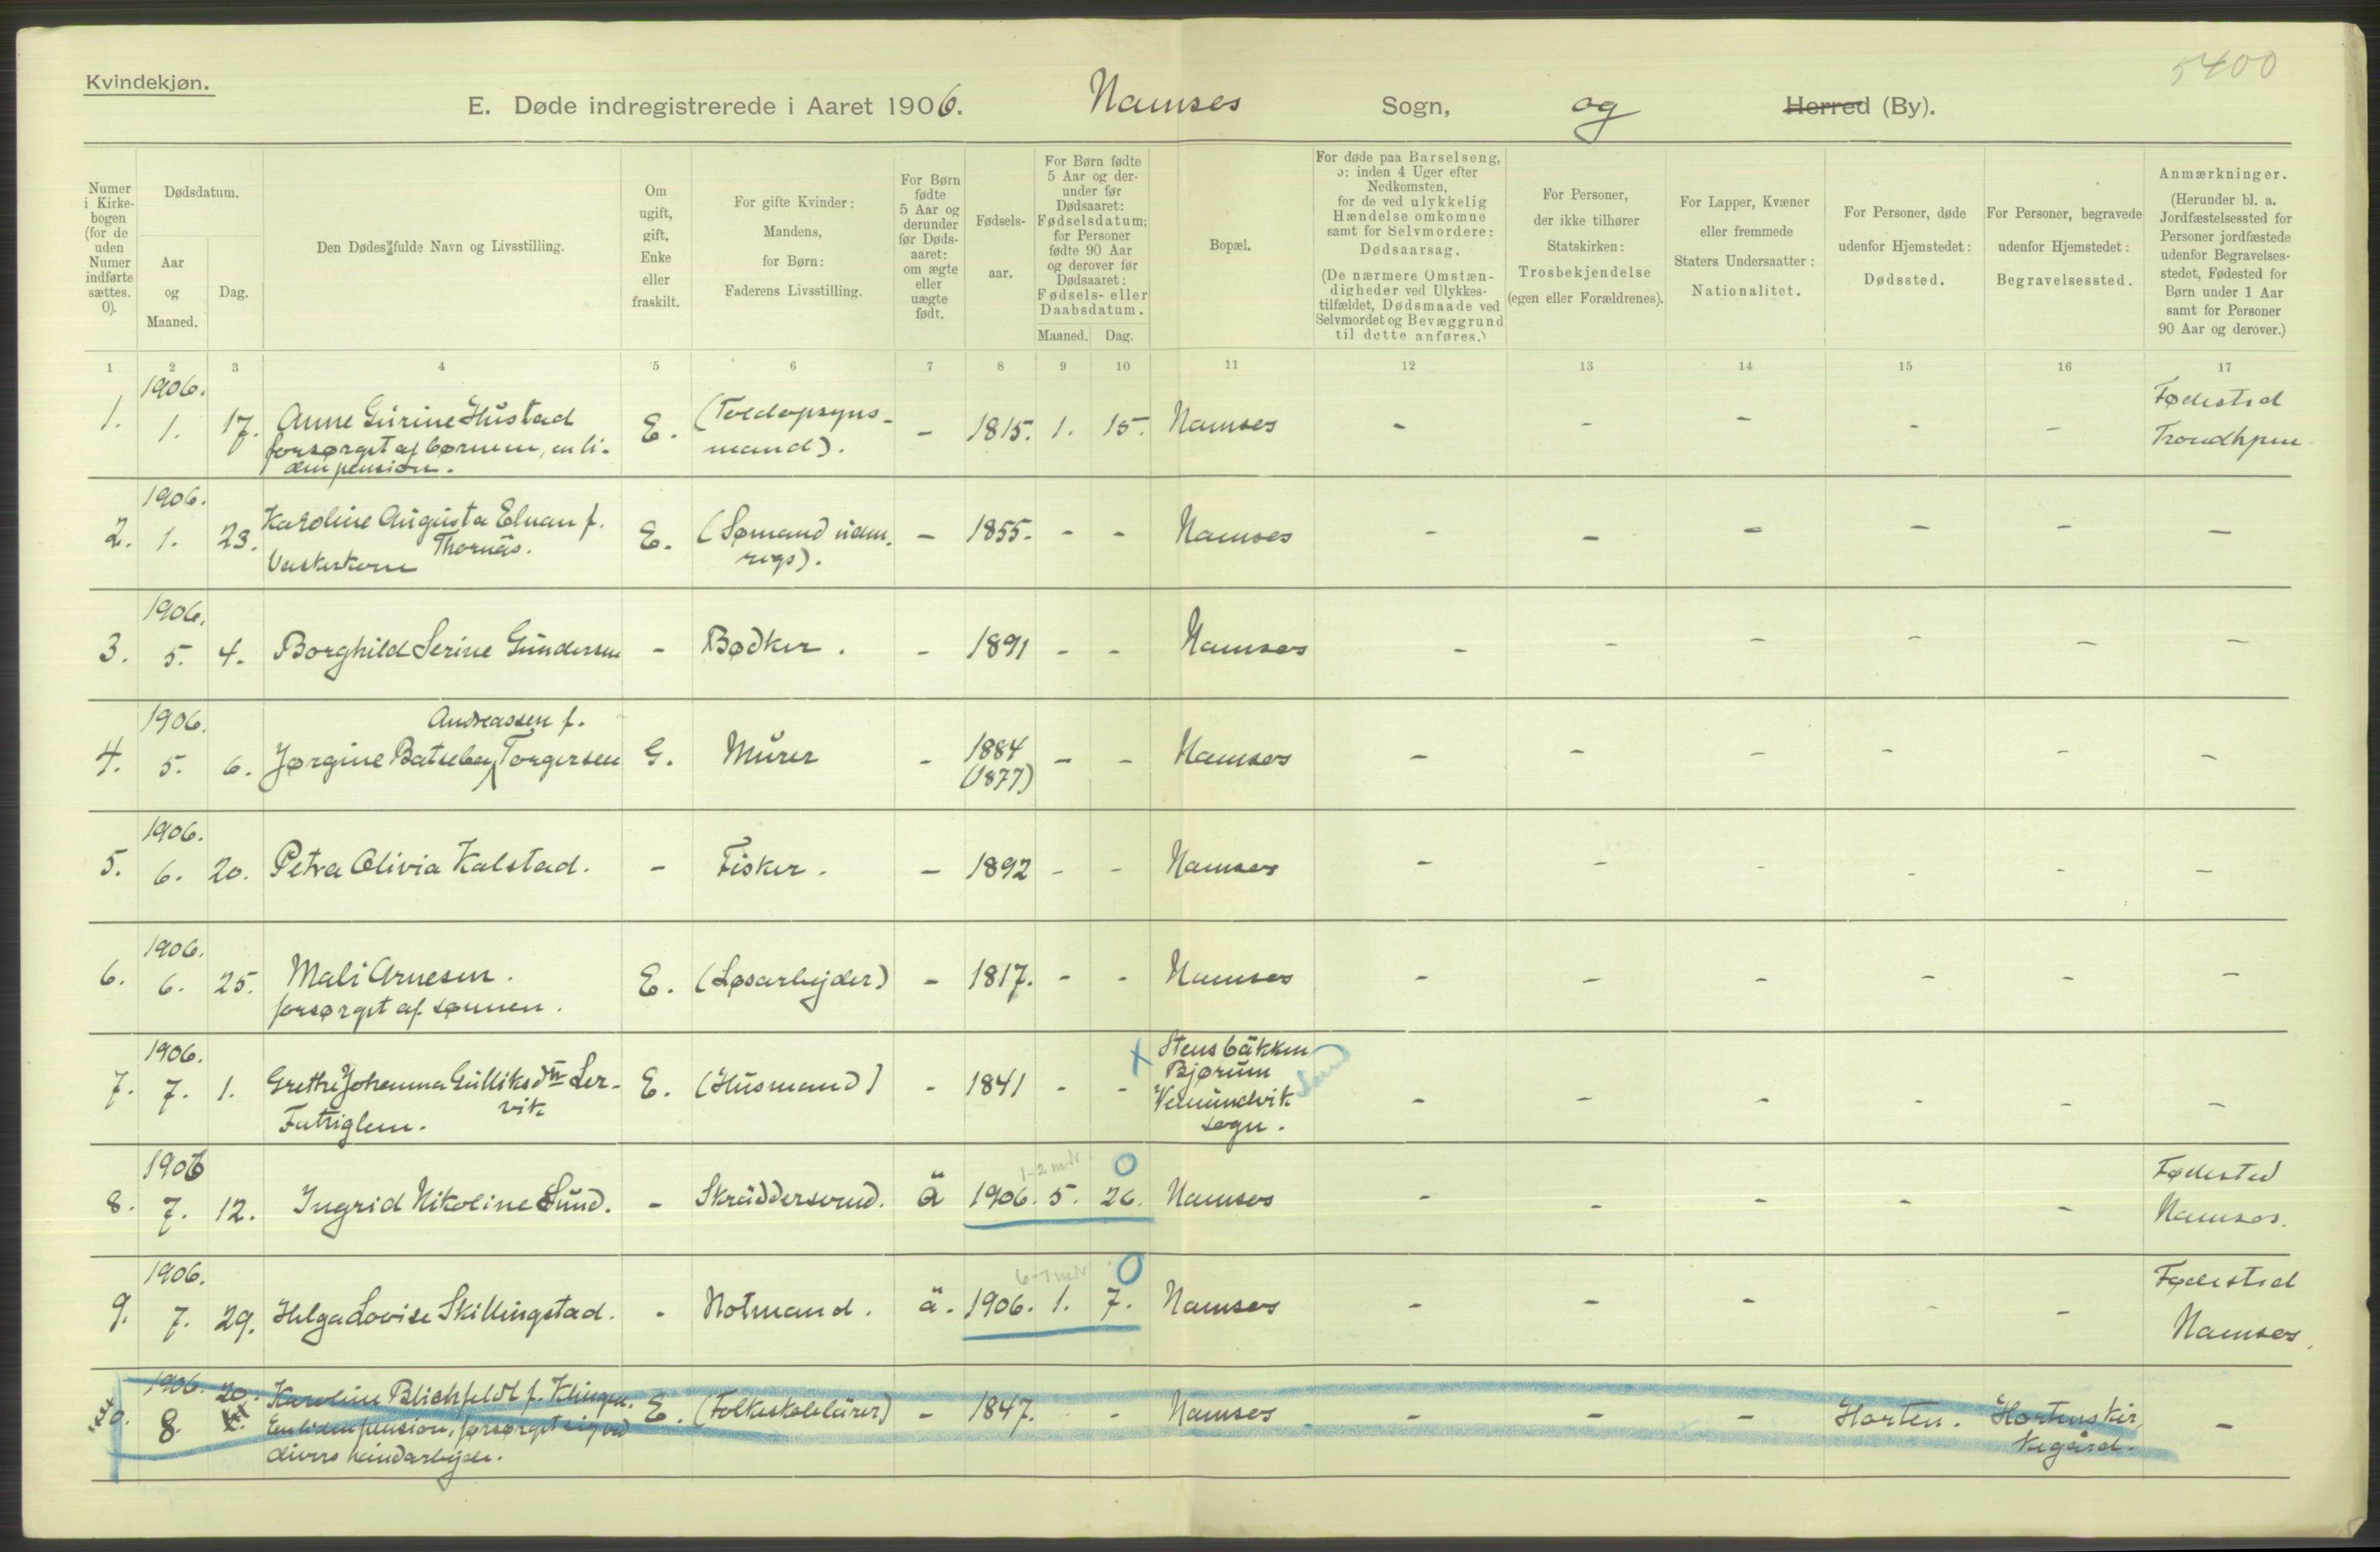 Kvindekjøn.
5400
E. Døde indregistrerede i Aaret 1906. Namsos Sogn, og Herred (By).
Numer i Kirkebogen (for de uden Numer indførte sættes. 0).
Dødsdatum.
Aar og Maaned.
Dag.
Den Dødes fulde Navn og Livsstilling.
Om ugift, gift, Enke eller fraskilt.
For gifte Kvinder: Mandens, for Børn: Faderens Livsstilling.
For Børn fødte 5 Aar og derunder før Dødsaaret: om ægte eller uægte født.
Fødselsaar.
For Børn fødte 5 Aar og derunder før Dødsaaret: Fødselsdatum; for Personer fødte 90 Aar og derover før Dødsaaret: Fødsels- eller Daabsdatum.
Maaned. Dag.
Bopæl.
For døde paa Barselseng, ɔ: inden 4 Uger efter Nedkomsten, for de ved ulykkelig Hændelse omkomne samt for Selvmordere: Dødsaarsag.
(De nærmere Omstændigheder ved Ulykkestilfældet, Dødsmaade ved Selvmordet og Bevæggrund til dette anføres.)
For Personer, der ikke tilhører Statskirken: Trosbekjendelse (egen eller Forældrenes).
For Lapper, Kvæner eller fremmede Staters Undersaatter: Nationalitet.
For Personer, døde udenfor Hjemstedet: Dødssted.
For Personer, begravede udenfor Hjemstedet: Begravelsessted.
Anmærkninger.
(Herunder bl. a. Jordfæstelsessted for Personer jordfæstede udenfor Begravelsesstedet, Fødested for Børn under 1 Aar samt for Personer 90 Aar og derover.)
1 2 3 4 5 6 7 8 9 10 11 12 13 14 15 16 17
1906.
1. 1. 17. Anne Gurine Hustad E. (Toldopsyns- - 1815. 1. 15. Namsos - - - - - Fødested
forsørget af børnene, en li- mand). Trondhjem
den pension.
1906.
2. 1. 23. Karoline Augusta Elnan f. E. (Sømand uden. - 1855. - - Namsos - - - - - -
Thornäs. rigs).
Vaskerkone
1906.
3. 5. 4. Borghild Serine Gundersen - Bødker. - 1891 - - Namsos - - - - - -
1906. Andreassen f.
4. 5. 6. Jørgine Batseba Torgersen G. Murer - 1884 - - Namsos - - - - - -
(1877)
1906.
5. 6. 20. Petra Olivia Kalstad. - Fisker. - 1892 - - Namsos - - - - - -
1906.
6. 6. 25. Mali Arnesen. E. (Løsarbejder) - 1817. - - Namsos - - - - - -
forsørget af sønnen.
1906. x Stensbäkken
Bjørum
7. 7. 1. Grethe Johanna Gulliksdtr Ler- E. (Husmand) - 1841 - - Vemundvik - - - - - -
vik sogn.
Fattiglem.
1906 1-2 mdr 0 Fødested
8. 7. 12. Ingrid Nikoline Sund. - Skräddersvend. ä 1906. 5. 26. Namsos - - - - - Namsos.
1906. 6-7 mdr 0 Fødested
9. 7. 29. Helga Lovise Skillingstad. - Notmand. ä. 1906. 1. 7. Namsos - - - - - Namsos.
1906. 20. Karoline Blichfeldt f. Klingen.
10. 8. E. (Folkeskolelärer) - 1847. - - Namsos - - - Horten. Hortens kir- -
En liden pension, forsørget sig ved kegård.
divers håndarbejde.